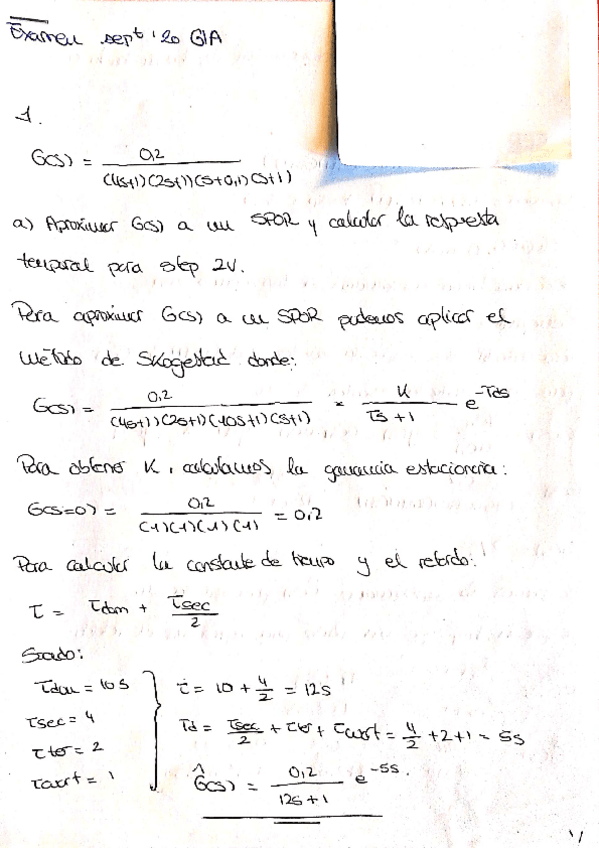 Examen sept '20 GIA
1.
G(s) = 0,2 / (4s+1)(2s+1)(s+0,1)(s+1)
a) Aproximar G(s) a un SPOR y calcular la respuesta
temporal para step 2V.
Para aproximar G(s) a un SPOR podemos aplicar el
método de Skogestad donde:
G(s) = 0,2 / (4s+1)(2s+1)(10s+1)(s+1) = K / τs+1 e^-Tds
Para obtener K, calculamos la ganancia estacionaria:
G(s=0) = 0,2 / (1)(1)(1)(1) = 0,2
Para calcular la constante de tiempo y el retardo:
τ = τdom + τsec / 2
Siendo:
τdom = 10s
τsec = 4
τter = 2
τcuart = 1
τ = 10 + 4/2 = 12s
Td = τsec/2 + τter + τcuart = 4/2 + 2 + 1 = 5s
Ĝ(s) = 0,2 / 12s+1 e^-5s.